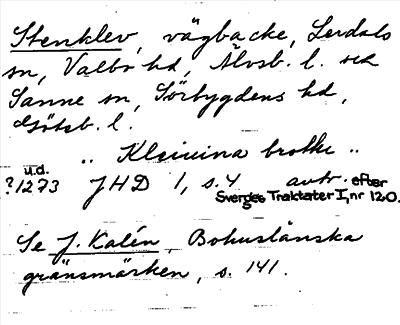 Stenklev, vägbacke, Lerdals
sn, Valbo hd, Älvsb. l. och
Sanne sn, Sörbygdens hd,
Götsb. l.
„ Kleiuina brotke „
u.d.
?1273 JHD 1, s. 4 avtr. efter
Sverges Traktater I, nr 120.
Se J. Kalén, Bohuslänska
gränsmärken, s. 141.